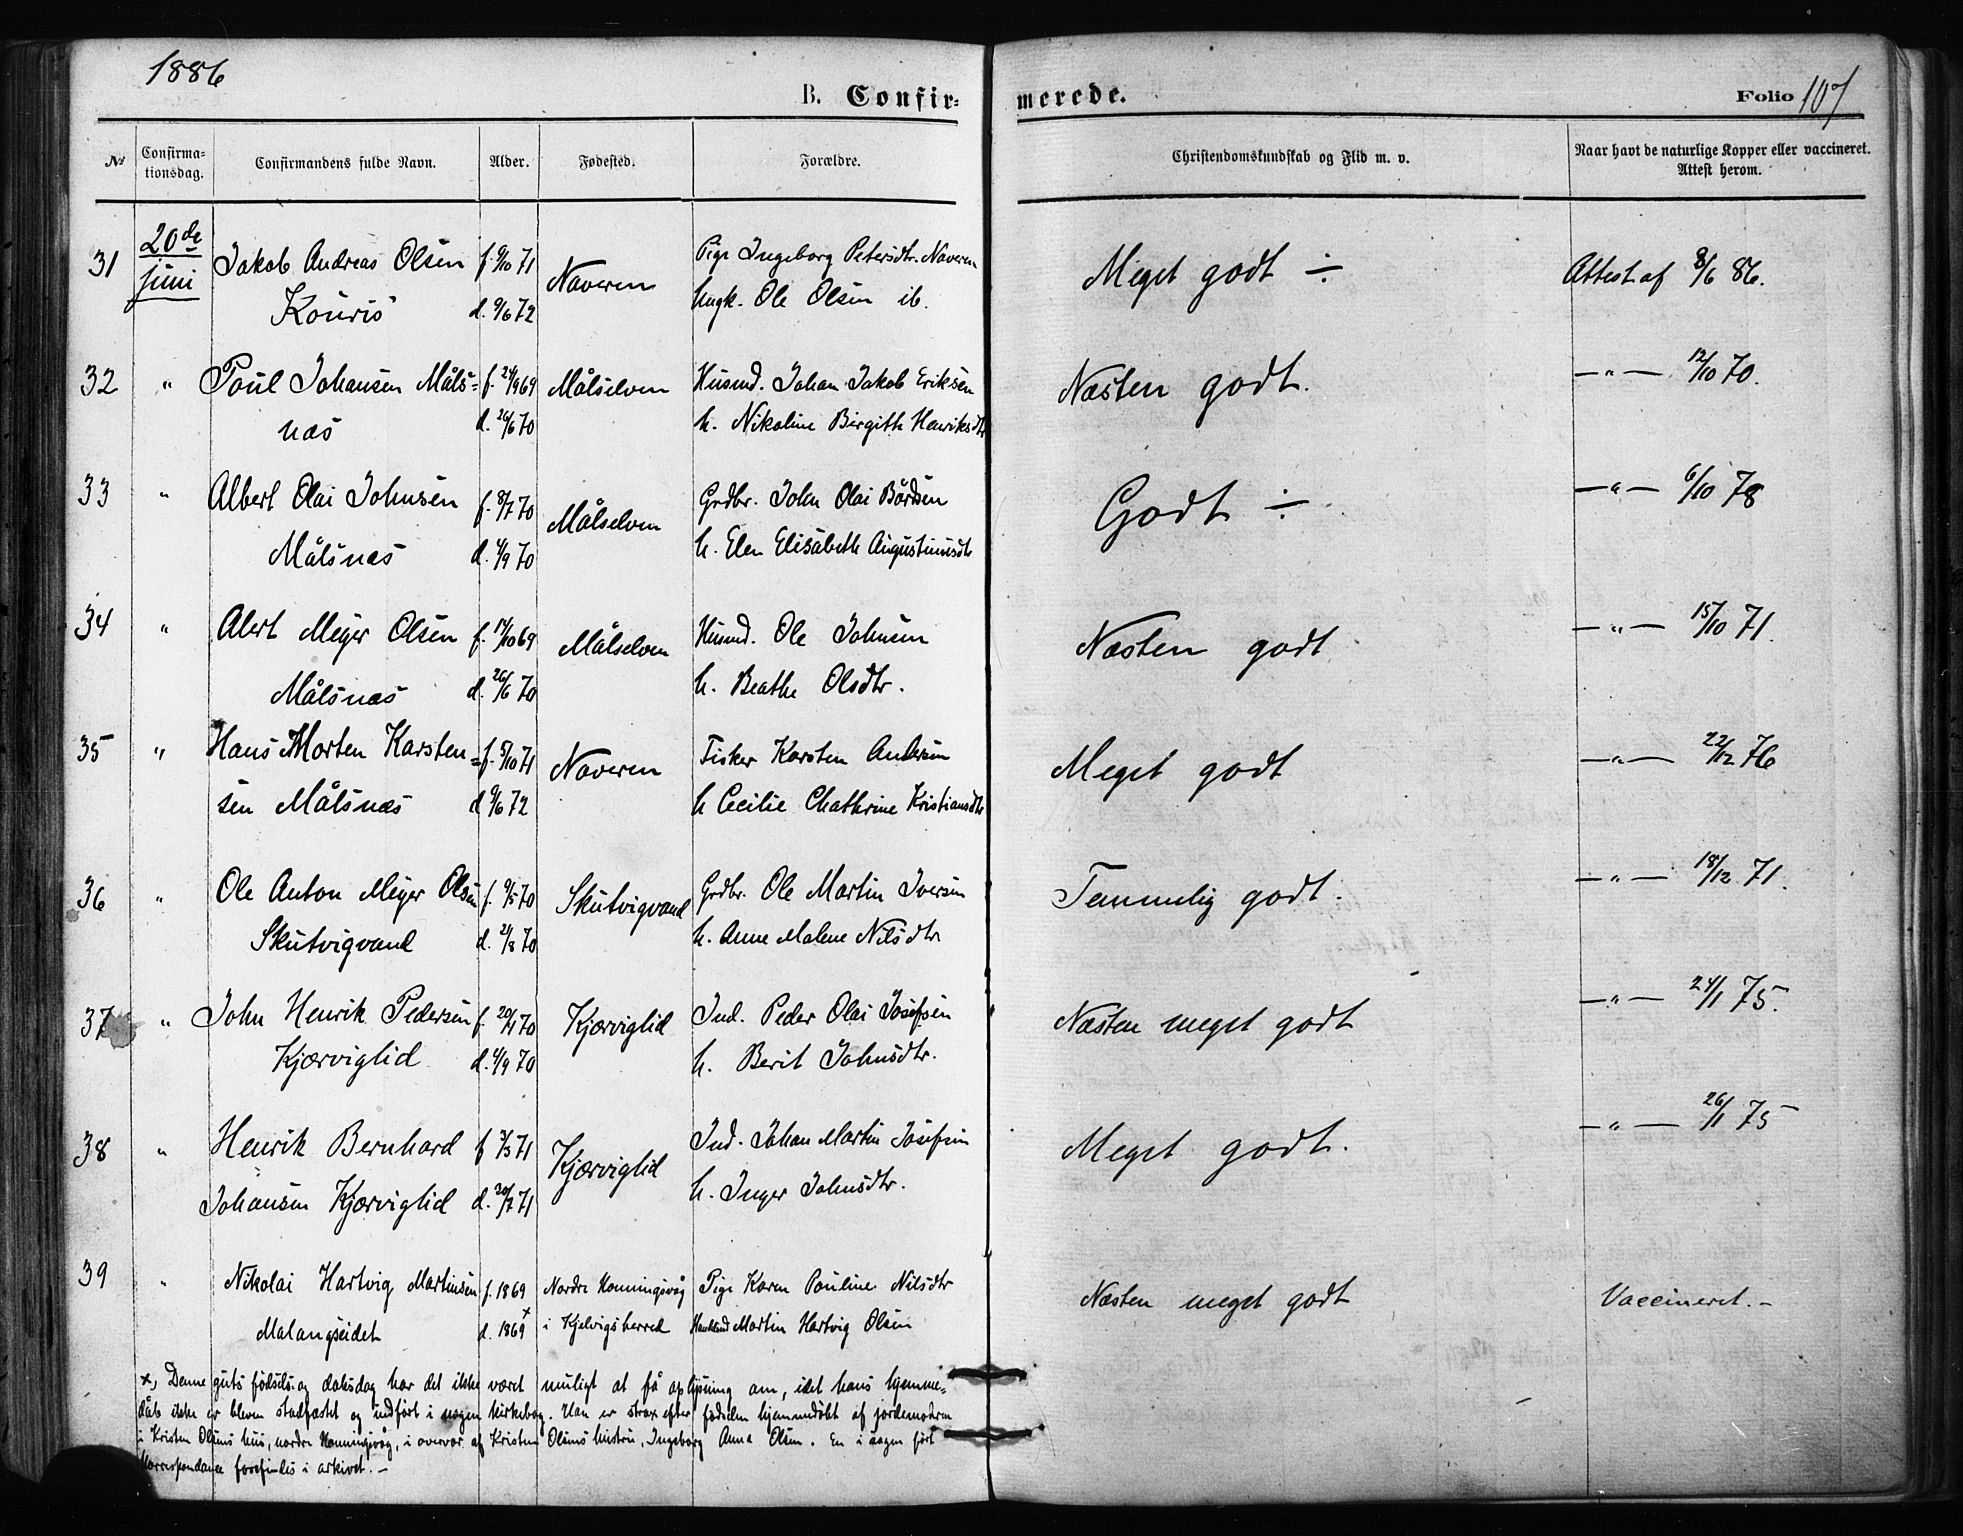 1886
B. Confir= merede. Folio 107
No Confirma- Confirmandens fulde Navn. Alder. Fødested. Forældre. Christendomskundskab og Flid m. v. Naar havt de naturlige Kopper eller vaccineret.
tionsdag. Attest herom.
31 20de Jakob Andreas Olsen f. 9/10 71 Naveren Pige Ingeborg Petersdtr. Naveren Meget godt ÷ Attest af 8/6 86.
juni Kouris d. 9/6 72 Ungk. Ole Olsen ib.
32 " Poul Johansen Måls= f. 24/9 69 Målselven Husmd. Johan Jakob Eriksen Næsten godt. —"— 12/10 70.
næs d. 26/6 70 h. Nikoline Birgith Henriksdtr
33 " Albert Olai Johnsen f. 8/7 70 Målselven Grdbr. John Olai Bårdsen Godt ÷ —"— 6/10 78
Målsnæs d. 4/9 70 h. Elen Elisabeth Augustinusdtr
34 " Alert Meyer Olsen f. 14/10 69 Målselven Husmd. Ole Johnsen Næsten godt —"— 15/10 71.
Målsnæs d. 26/6 70 h. Beathe Olsdtr.
35 " Hans Morten Karsten= f. 5/10 71 Naveren Fisker Karsten Andersen Meget godt —"— 22/12 76
sen Målsnæs d 9/6 72 h Cecilie Chathrine Kristiansdtr
36 " Ole Anton Meyer Olsen f. 9/5 70 Skutvigvand Grdbr. Ole Martin Iversen Temmelig godt. —"— 18/12 71.
Skutvigvand d. 2/8 70 h. Anne Malene Nilsdtr
37 " John Henrik Pedersen f. 20/1 70 Kjærviglid Ind. Peder Olai Josefsen Næsten meget godt —"— 24/1 75.
Kjærviglid d. 4/9 70 h. Berit Johnsdtr.
38 " Henrik Bernhard f 3/3 71 Kjærviglid Ind. Johan Martin Josefsen Meget godt. —"— 26/1 75
Johansen Kjærviglid d. 30/7 71 h. Inger Johnsdtr.
39 " Nikolai Hartvig Martinsen f. 1869 Nordre Honningsvåg Pige Karen Pauline Nilsdtr Næsten meget godt Vaccineret.–
Malangseidet d. 1869 x i Kjelvigs herred Martin Hartvig Olsen
x, Denne guts fødsels- og dåbsdag har det ikke været muligt at få oplysning om, idet hans hjemme=
dåb ikke er bleven stadfæstet og indført i nogen kirkebog. Han er strax efter fødselen hjemmedøbt af jordemoderen
i Kristen Olsens hus, nordre Honningsvåg, i overvær af Kristen Olsens hustru, Ingeborg Anna Olsen. En i sagen ført
korrespondance forefindes i arkivet.–